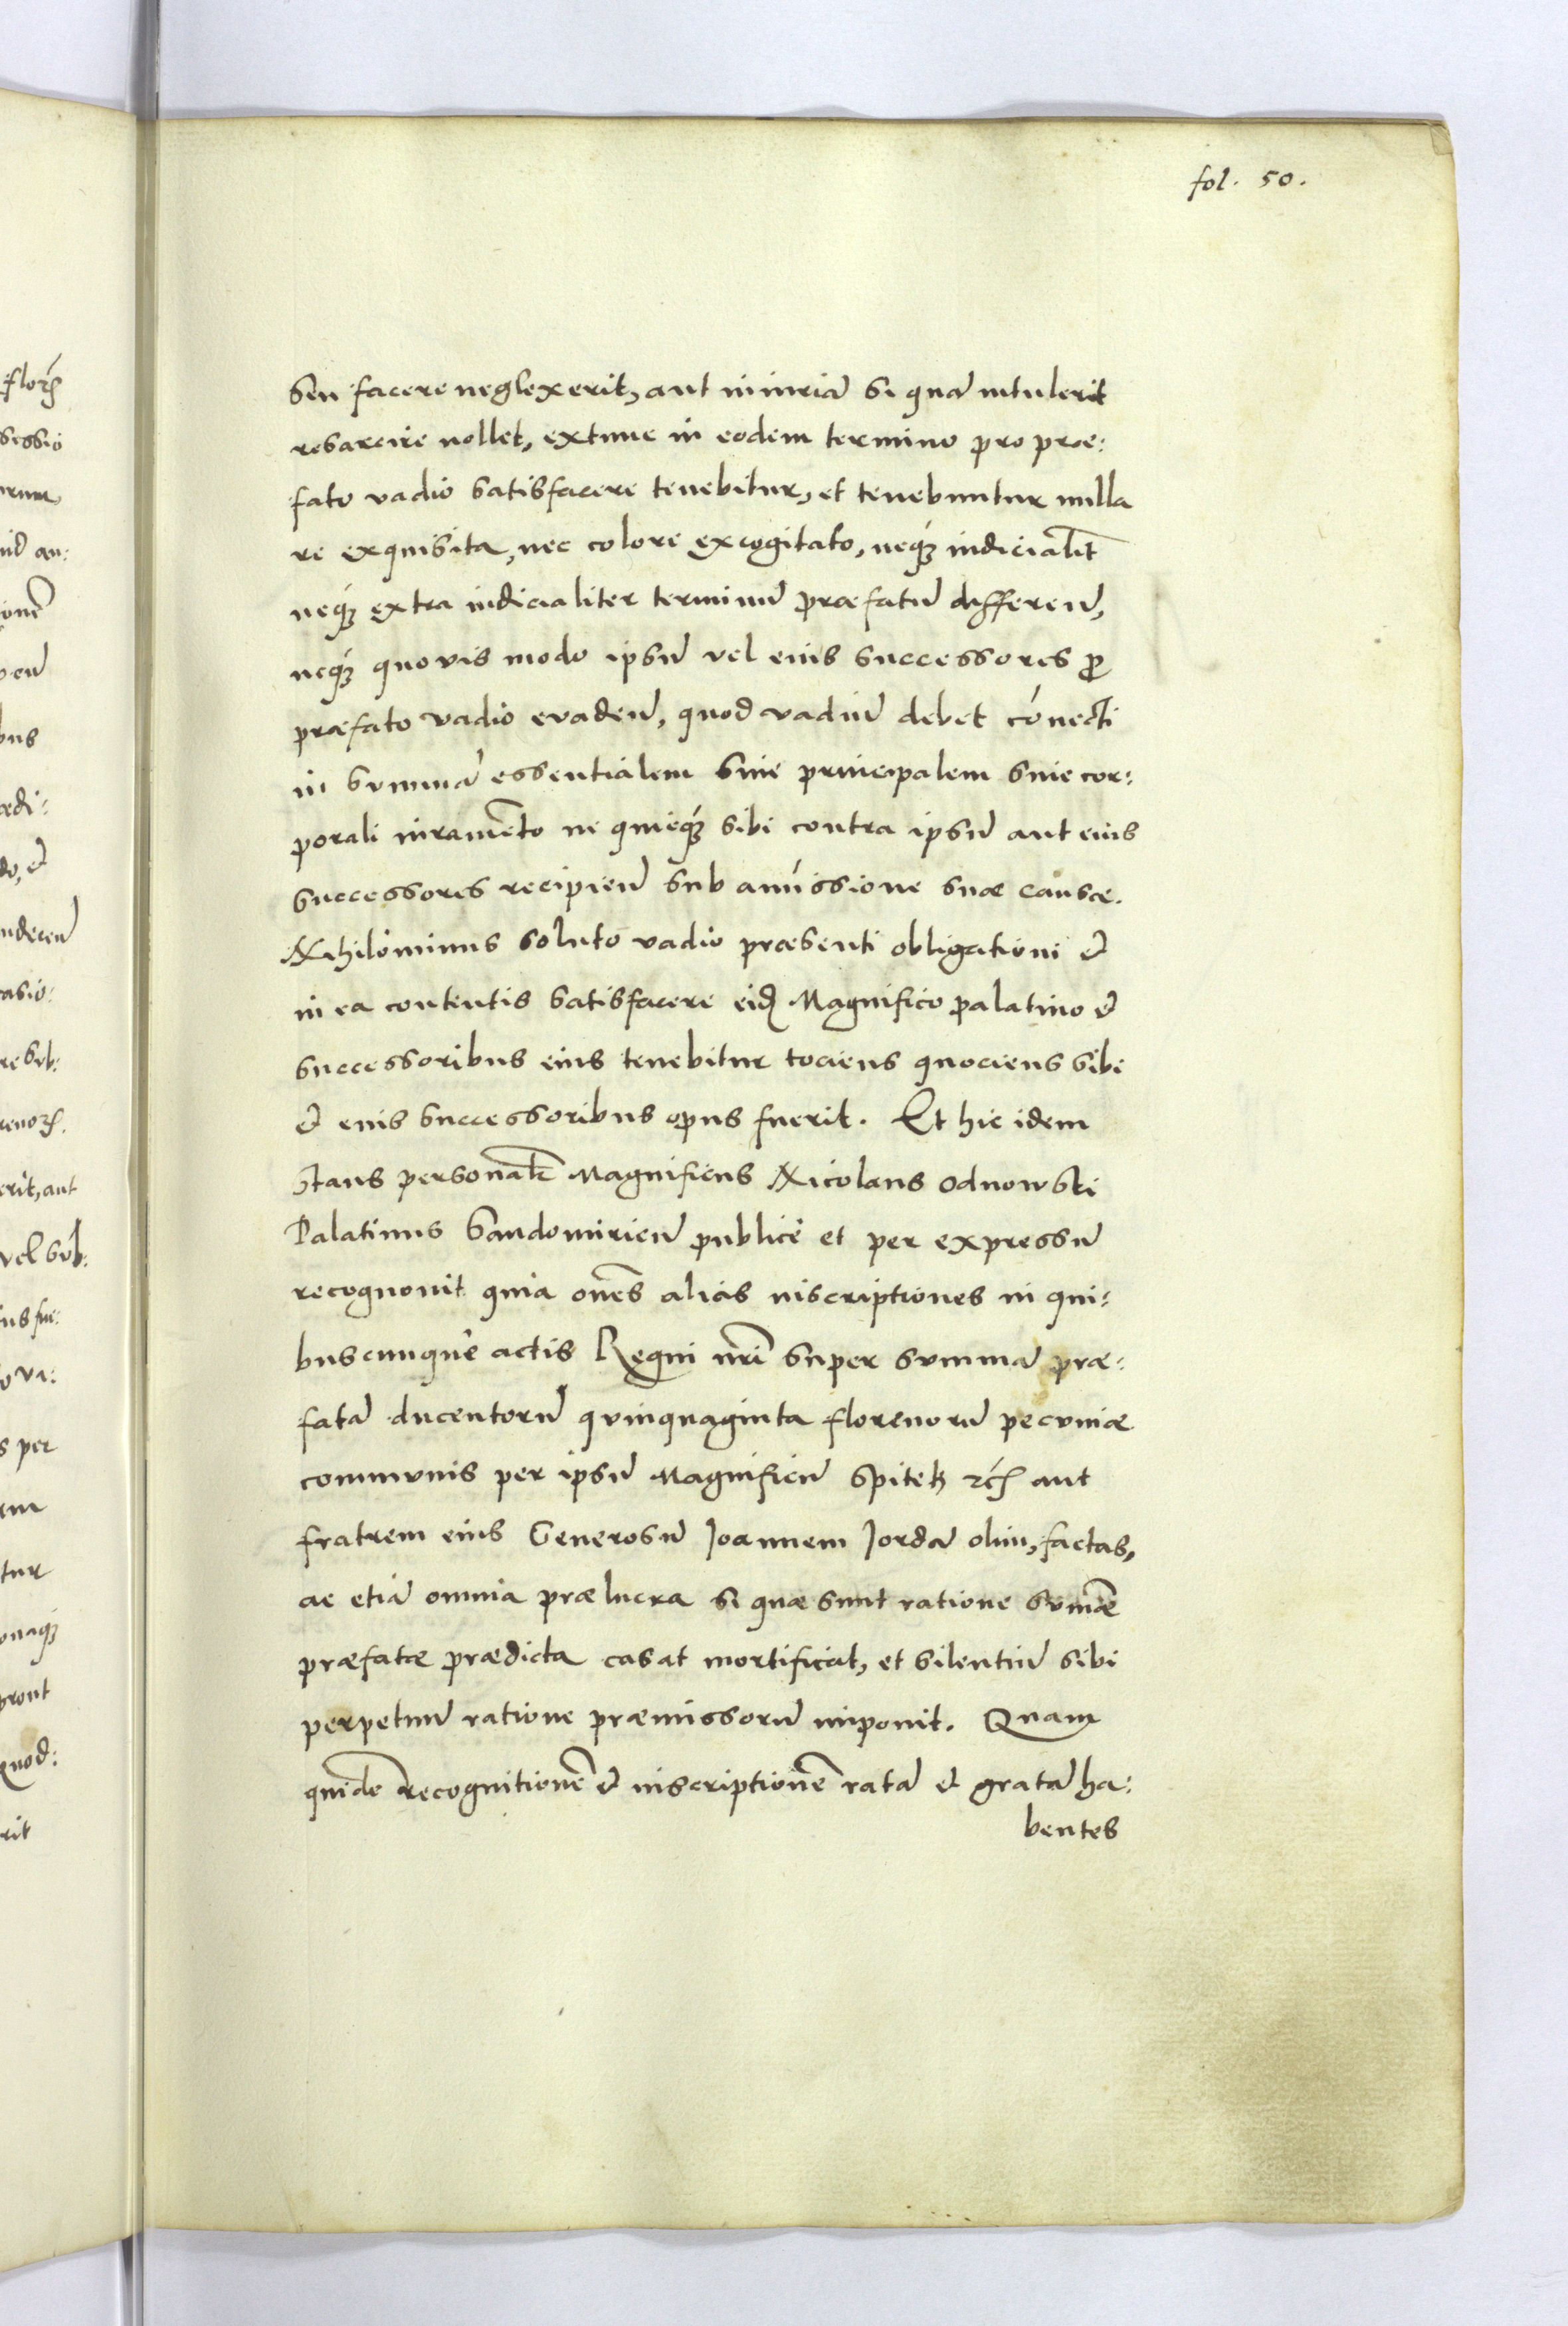 fol. 50.
seu facere neglexerit, aut iniuriā si quā intulerit
resarcire nollet, extunc in eodem termino pro præ:
fato vadio satisfacere tenebitur, et tenebuntur nulla
re exquisita, nec colore excogitato, neqꝫ iudicialit̄
neqꝫ extra iudicialiter terminū præfatū differeñ,
neqꝫ quovis modo ipsū vel eius successores ꝓ
præfato vadio evadeñ, quod vadiū debet cōnecti
in summā essentialem sine principalem sine cor:
porali iuramēto ne quicqꝫ sibi contra ipsū aut eius
successores recipieñ sub amissione suæ causæ.
Nihilominus soluto vadio præsenti obligationi et
in ea contentis satisfacere eidē Magnifico palatino et
successoribus eius tenebitur tociens quociens sibi
et eius successoribus opus fuerit. Et hic idem
stans personalit̄ Magnificus Nicolaus Odnowski
Palatinus Sandomirień publice et per expressū
recognovit quia oēs alias inscriptiones in qui:
buscunque actis Regni nr̄i super summā præ:
fatā ducentorū quinquaginta florenorū pecuniæ
communis per ipsū Magnificū Spitek etc̄ aut
fratrem eius Generosū Joannem Jordā olim, factas,
ac etiā omnia prælucra si quæ sunt ratione sūmæ
præfatæ prædicta casat mortificat, et silentiū sibi
perpetuū ratione præmissorū imponit. Quam
quidē recognitionē et inscriptionē ratā et gratā ha:
bentes
florꝫ
sessio
orum,
aut
erit, aut
vel sub:
s per
tur
onaqꝫ
prout
quod:
rit